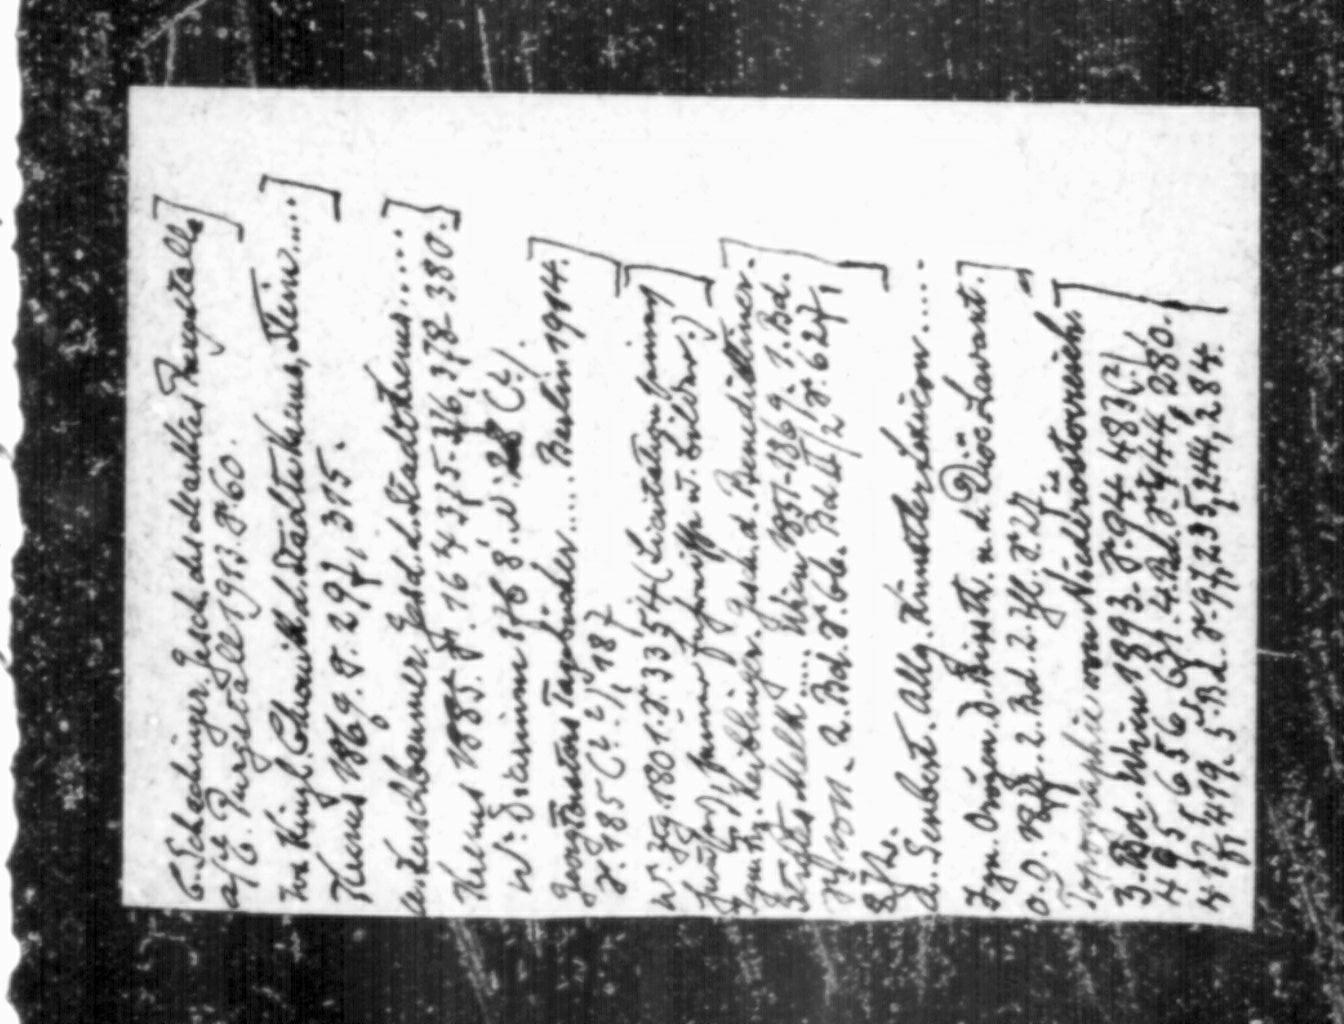 C. Schachinger. Gesch. des Marktes Purgstall
a/E. Purgstall 1913. S. 60.
Kinzl. Chronik d. Städte Krems, Stein.....
Krems 1869. S. 297, 315.
A. Kerschbaumer. Gesch. d. Stadt Krems.....
Krems 1885. S. 16 375. 376, 378-380.
W. Diarium 1768. N. 28
Georg Tagebücher.... Berlin 1914.
S. 185 187
W. Ztg. 1801. S. 3354 (Licitation
W. Bilder.)
Ign. Fz. Keiblinger. Gesch. d. Benedictiner-
Stiftes Melk..... Wien 1851-1869. 1. Bd.
2. Bd. S. 66. Bd II/2 S. 627,
872.
A. Seubert. Allg. Künstlerlexicon....
Ign. Orožen. D. Bisth. u. d. Diöc. Lavant.
2. Bd. 2. Thl. S. 27
Topographie von Niederösterreich.
3. Bd. Wien 1893. S. 94 483
495 656 639. 4. Bd. S. 444, 280.
412, 419. 5. Bd. S. 97, 235, 244, 284.